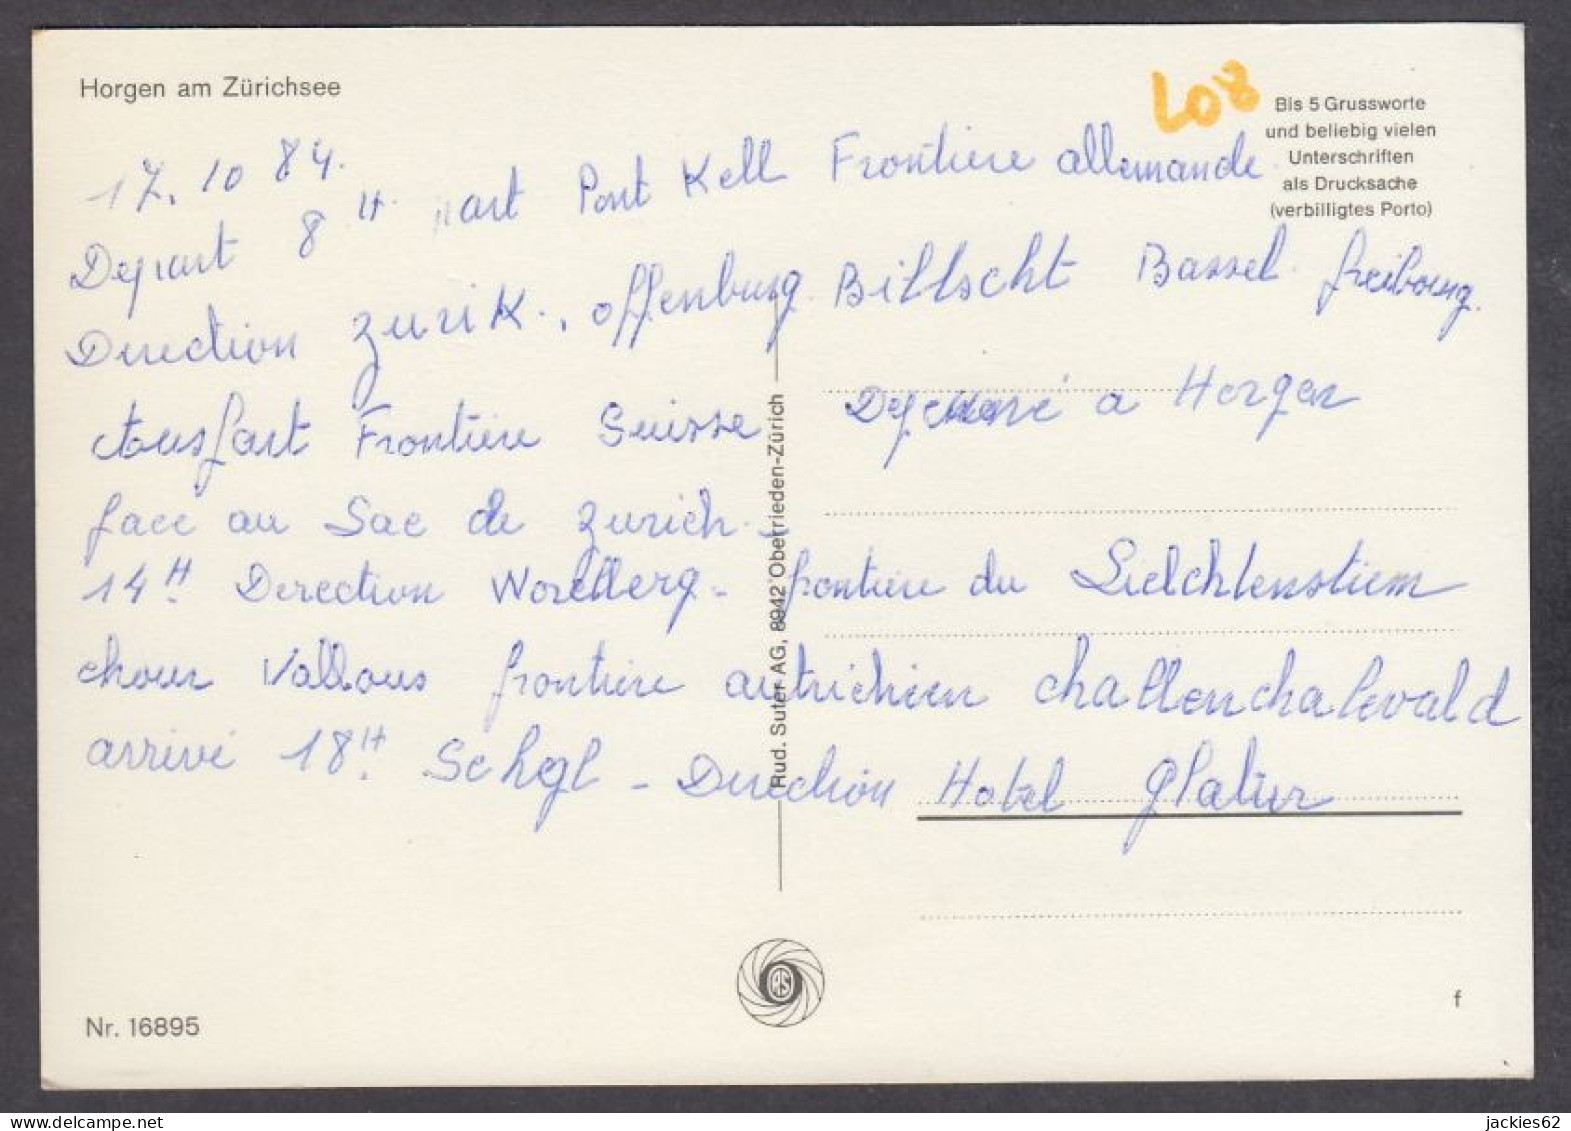 Horgen am Zürichsee
L08
Bis 5 Grussworte
und beliebig vielen
Unterschriften
als Drucksache
(verbilligtes Porto)
17.10 84.
Depart 8H. part Pont Kell Frontiere allemande
Direction Zurik., Offenburg. Billscht Bassel. freibourg.
Frontiere Suisse Dejeuné a Horgen
face au Sac de Zurich -
14H Direction - frontiere du Lielchlenstiem
chour Vallous frontiere autrichien challenchalevald
arrivé 18H. Schgl - Direction Hotel Glatier
Rud. Suter AG, 8942 Oberrieden-Zürich
RS
f
Nr. 16895
www.delcampe.net
jackies62